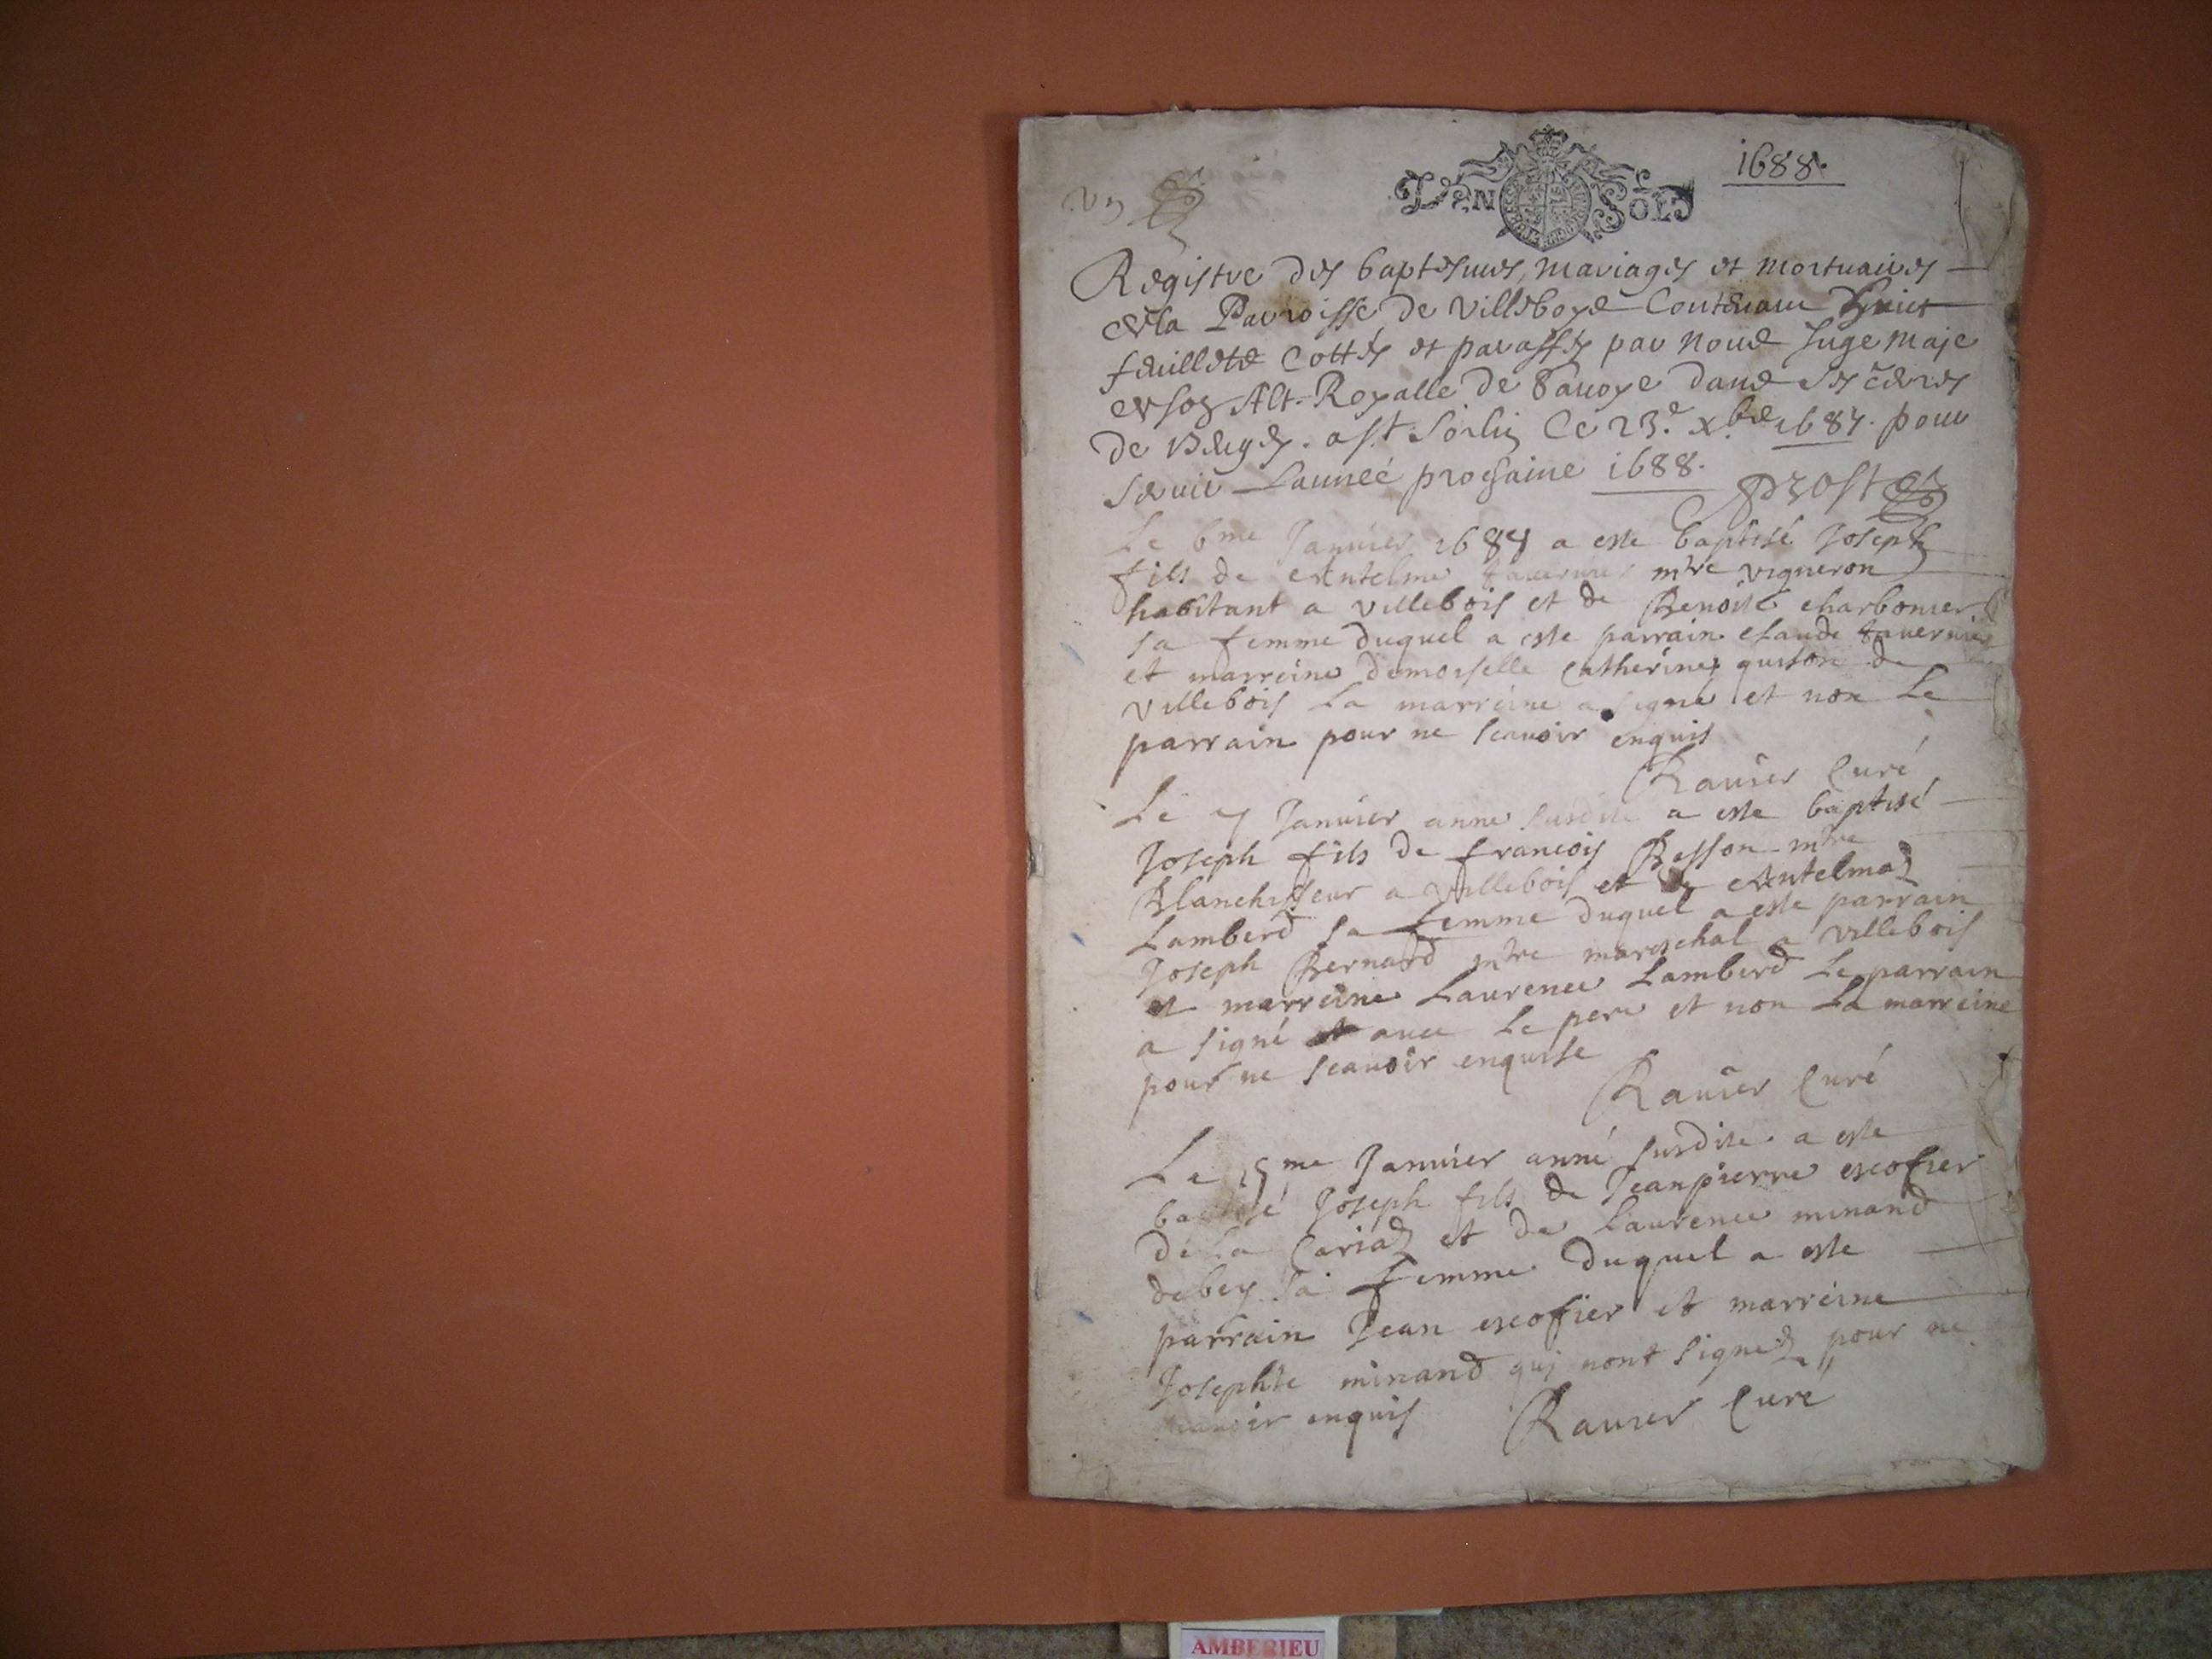 1688.
Vn
Registre des baptesmes, mariages et mortuaires
de la Parroisse de Villeboye Contenant huict
feuillets Cottés et paraffés par Nous Juge maje
de son Alt. Royalle de Sauoye dans ses terres
de Bugey. a st Sorlin Ce 23.e xbre 1687. pour
seruir Lannee prochaine 1688. Prost
Le 6me Januier 1684 a este baptisé Joseph
fils de Antelme tauernier mtre vigneron
habitant a villebois et de Benoite charbonier
sa femme duquel a este parrain claude tauernier
et marreine demoiselle Catherine guison de
villebois La marreine a signé et non Le
parrain pour ne scauoir enquis
Rauier Curé
Le 7 Januier anne susdite a este baptisé
Joseph fils de francois Besson mtre
Blanchisseur a villebois et de Antelma
Lamberd sa femme duquel a este parrain
Joseph Bernard mtre mareschal a villebois
et marreine Laurence Lamberd Le parrain
a signé auec Le pere et non La marreine
pour ne scauoir enquise
Rauier Curé
Le 15me Januier anné susdite a este
baptisé Joseph fils de Jeanpierre escofier
de La Caria et de Laurence minand
debey sa femme duquel a este
parrain Jean escofier et marreine
Josephte minand qui nont signez pour ne
scauoir enquis Rauier Curé
AMBERIEU